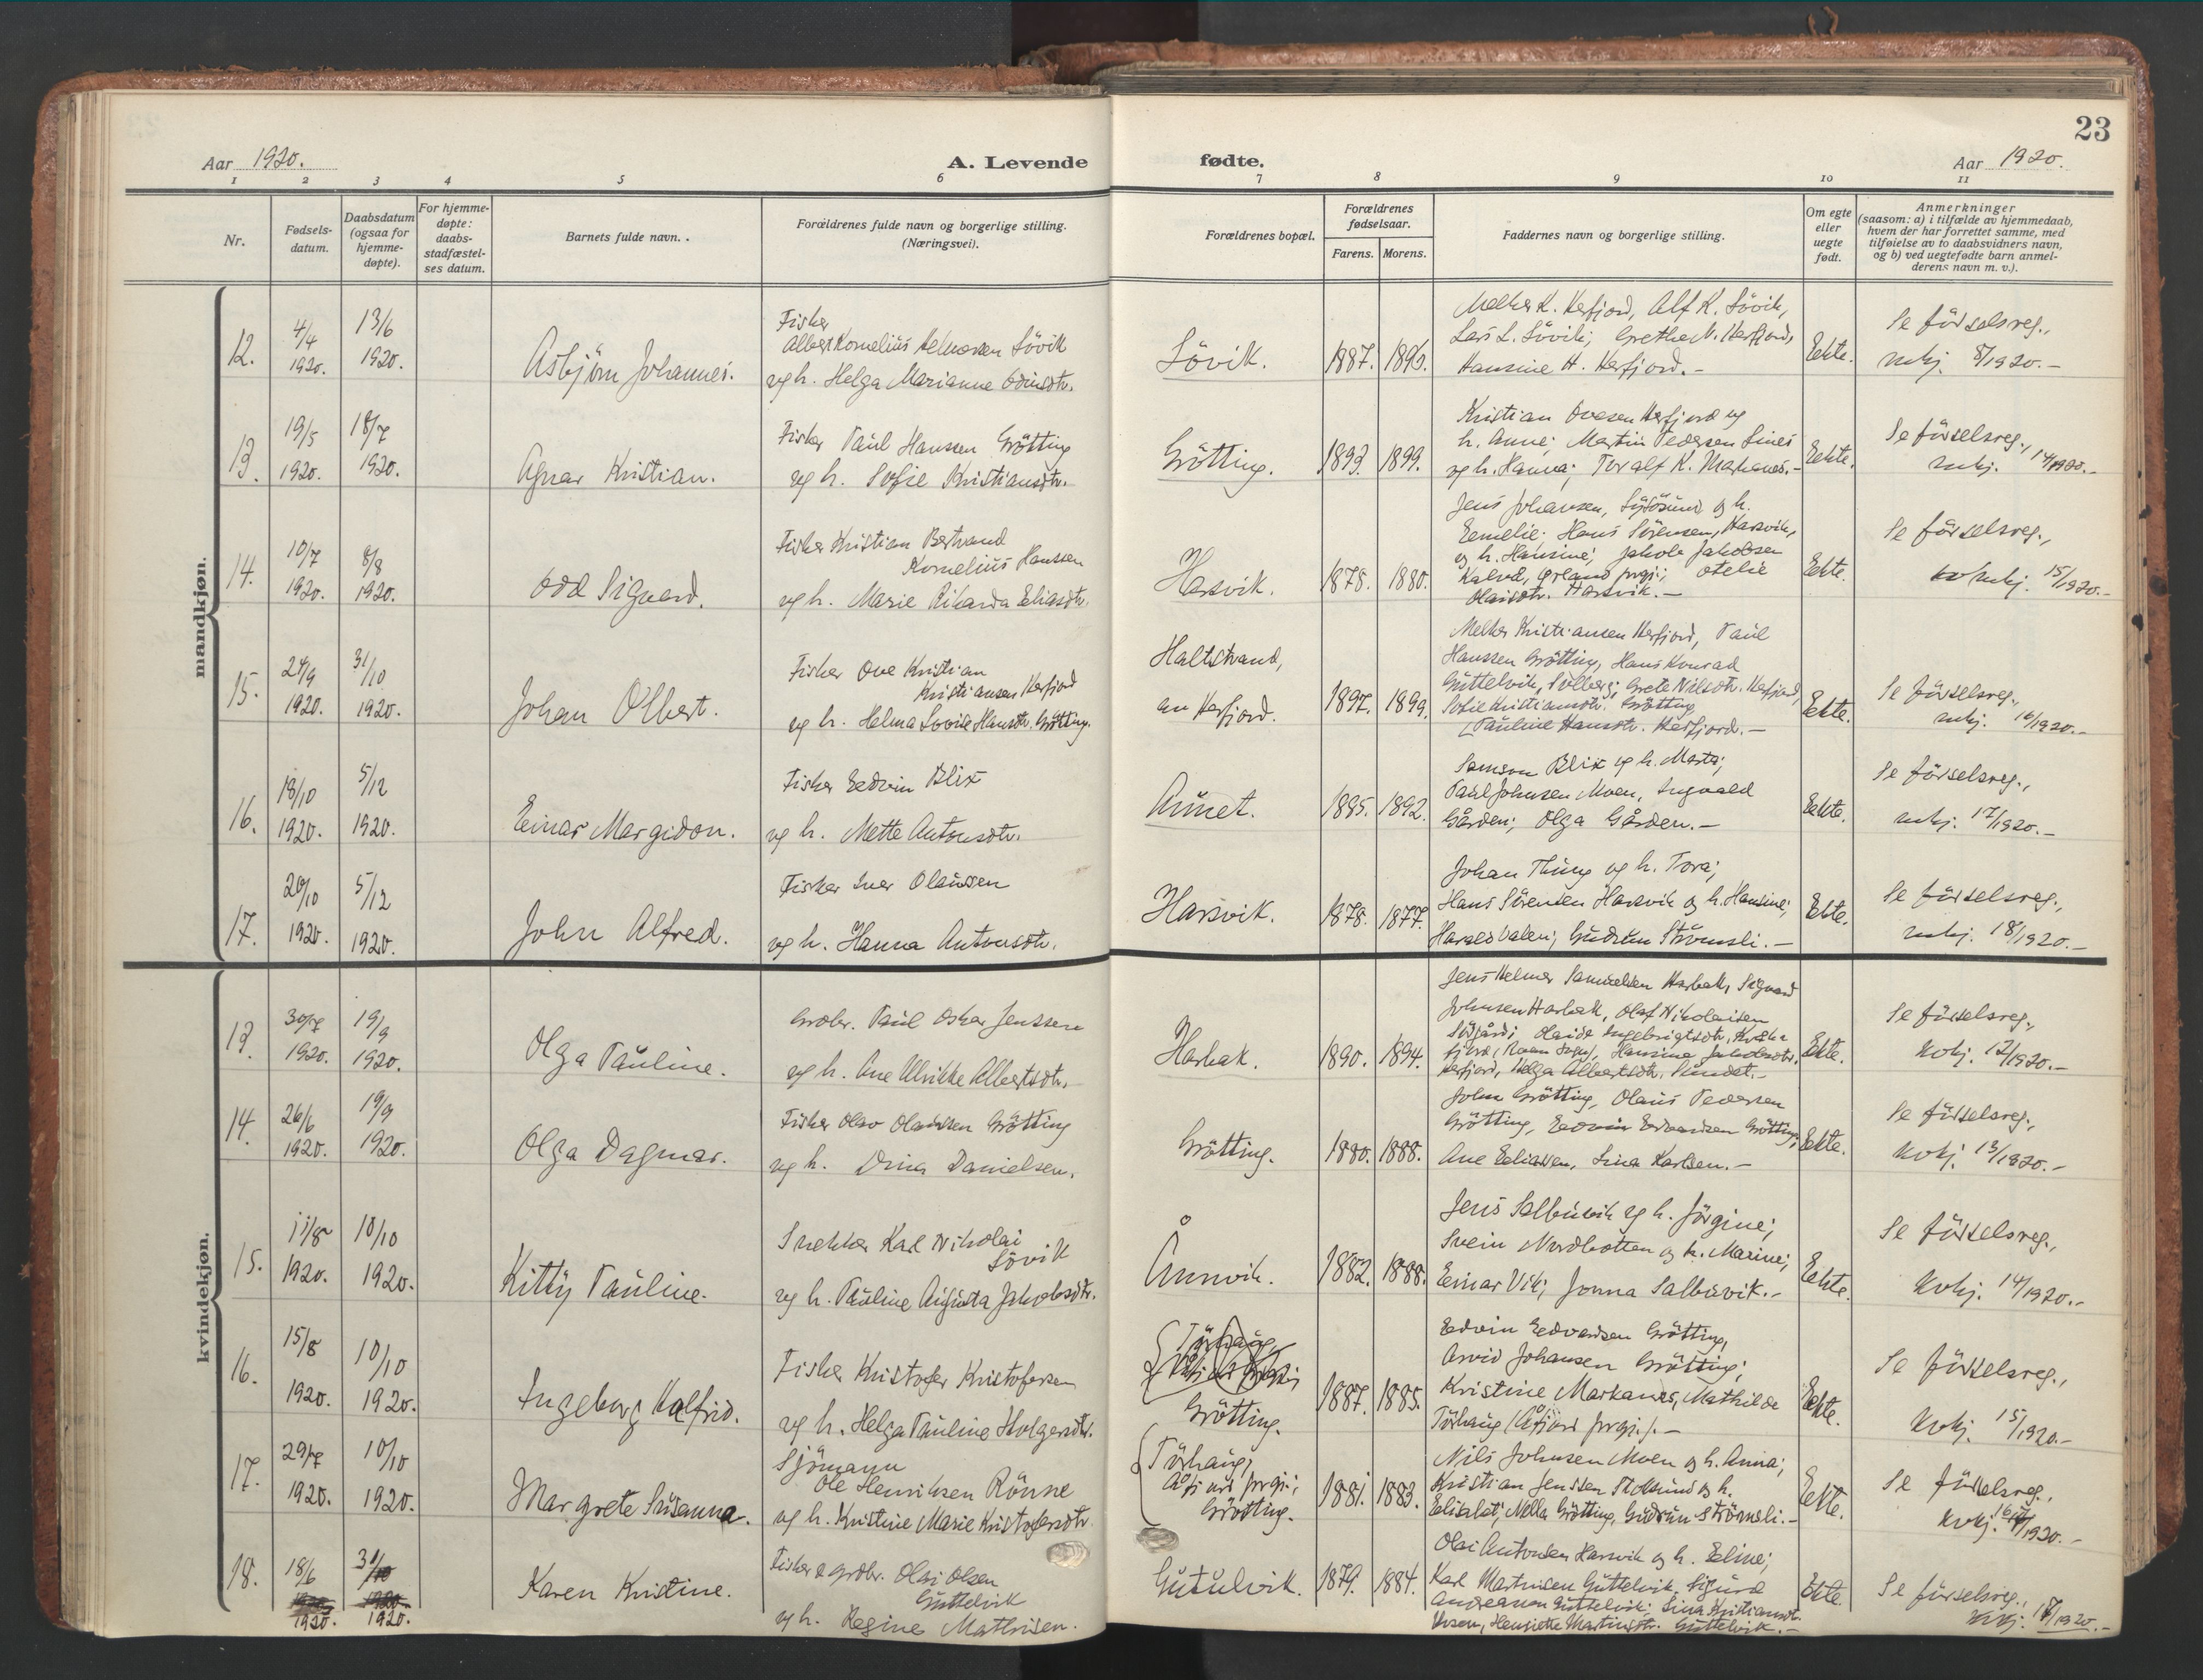 23
Aar 1920.
A. Levende
fødte.
Aar 1920.
1 2 3 4 5 6 7 8 9 10 11
Nr.
Fødsels-
datum.
Daabsdatum
(ogsaa for
hjemme-
døpte).
For hjemme-
døpte:
daabs-
stadfæstel-
ses datum.
Barnets fulde navn. .
Forældrenes fulde navn og borgerlige stilling.
(Næringsvei).
Forældrenes bopæl.
Forældrenes
fødselsaar.
Farens. Morens.
Faddernes navn og borgerlige stilling.
Om egte
eller
uegte
født.
Anmerkninger
(saasom: a) i tilfælde av hjemmedaab,
hvem der har forrettet samme, med
tilføielse av to daabsvidners navn,
og b) ved uegtefødte barn anmel-
derens navn m. v.).
mandkjøn.
12.
4/4
1920.
13/6
1920.
Asbjörn Johannes.
Fisker
Albert Kornelius Lövik
og h. Helga Marianne Odinsdtr.
Lövik.
1887.
Melker K. Herfjord, Alf K. Lövik,
Lars L. Lövik; Grethe N. Herfjord,
Hansine H. Herfjord.-
Eekte.
Se födselsreg.,
mkj. 8/1920.-
13.
19/5
1920.
18/7
1920.
Agnar Kristian.
Fisker Paul Hansen Grötting
og h. Sofie Kristiansdtr.
Grötting.
1893. 1899.
Kristian Ovesen Herfjord og
h. Anne; Martin Pedersen Sines
og h. Hanna; Toralf K. Markanes.-
Eekte.
Se födselsreg.,
mkj. 14/1920.-
14.
10/7
1920.
8/8
1920.
Odd Sigvard.
Fisker Kristian Bertrand
Kornelius Hanssen
og h. Marie Rikarda Eliasdtr.
Harsvik.
1878. 1880.
Jens Johansen, og h.
Eemelie; Hans Sörensen, Harsvik,
og h. Hansine; Jakob Jakobsen
Kalvd, Örland prgj.; Otelie
Olaisdtr. Harsvik.-
Eekte.
Se födselsreg.,
mkj. 15/1920.-
15.
24/9
1920.
31/10
1920.
Johan Olbert.
Fisker Ove Kristian
Kristiansen Herfjord
og h. Helma Lovise Hansdtr. Grötting.
Haltstrand,
an Herfjord.
1897. 1899.
Melker Kristiansen Herfjord, Paul
Hanssen Grötting, Hans Konrad
Guttelvik, Solberg; Grete Nilsdtr. Herfjord,
Sofie Kristiansdtr. Grötting
Pauline Hansdtr. Herfjord.-
Eekte.
Se födselsreg.,
mkj. 16/1920.-
16.
18/10
1920.
5/12
1920.
Einar Margidon.
Fisker Eedvin Blix
og h. Mette Antonsdtr.
Aunet.
1885. 1892.
Samson Blix og h. Marta;
Paul Johnsen Moen, Ingvald
Gården; Olga Gården.-
Eekte.
Se födselsreg.,
mkj. 17/1920.-
17.
20/10
1920.
5/12
1920.
John Alfred.
Fisker Iver Olaussen
og h. Hanna Antonsdtr.
Harsvik.
1878. 1877.
Johan Thung og h. Tora;
Hans Sörensen Harsvik og h. Hansine;
Harald Dalen; Gudrun Strömsli.-
Ekte.
Se födselsreg.,
mkj. 18/1920.-
kvindekjøn.
13.
30/7
1920.
19/9
1920.
Olga Pauline.
Grdbr. Paul Oskar Jenssen
og h. Ane Ulrikke Albertsdtr.
Harbak.
1890. 1894.
Jens Helmer Samuelsen Harbak, Sigvard
Johnsen Harbak, Olaf Nikolaisen
Sörgård; Olaide Ingebrigtsdtr.
Hansine Jakobsdtr.
Herfjord, Helga Albertsdtr. Sundet.-
Eekte.
Se födselsreg.,
Kvkj. 12/1920.-
14.
26/6
1920.
19/9
1920.
Olga Dagmar.
Fisker Olav Olaussen Grötting
og h. Drina Danielsen.
Grötting.
1880. 1888.
John Grötting, Olaus Pedersen
Grötting, Eedvin Edvardsen Grötting;
Ane Eeliassen, Lina Karlsen.-
Eekte.
Se födselsreg.,
Kvkj. 13/1920.-
15.
11/8
1920.
10/10
1920.
Kitty Pauline.
Snekker Karl Nikolai
Lövik
og h. Pauline Augusta Jakobsdtr.
Ånnvik.
1882. 1888.
Jens Salbuvik og h. Jörgine;
Svein Nordbotten og h. Marine;
Eeinar Vik; Jonna Salbuvik.-
Eekte.
Se födselsreg.,
Kvkj. 14/1920.-
16.
15/8
1920.
10/10
1920.
Ingeborg Halfrid.
Fisker Kristofer Kristofersen
og h. Helga Pauline Holgersdtr.
Grötting.
1887. 1885.
Eedvin Eedvardsen Grötting,
Arvid Johansen Grötting;
Kristine Markanes, Mathilde
Törhaug (Åfjord prgj.).-
Eekte.
Se födselsreg.,
Kvkj. 15/1920.-
17.
29/7
1920.
10/10
1920.
Margrete Susanna.
Sjömann
Ole Henriksen Rönne
og h. Kristine Marie Kristofersdtr.
Törhaug,
Åfjord prgj.;
Grötting.
1881. 1883.
Nils Johnsen Moen og h. Anna;
Kristian Jenssen Stoksund og h.
Eelisabet; Mella Grötting, Gudrun Strömsli.-
Eekte.
Se födselsreg.,
Kvkj. 16/1920.-
18.
18/6
1920.
1920.
Karen Kristine.
Fisker & grdbr. Olai Olsen
Guttelvik
og h. Regine Mathisen.
Gutulvik.
1879. 1884.
Olai Antonsen Harsvik og h. Eeline;
Karl Martinsen Guttelvik, Sigurd
Andreasen Guttelvik; Lina Kristiansdtr.
Henriette Martinsdtr. Guttelvik.-
Ekte.
Se födselsreg.,
Kvkj. 17/1920.-